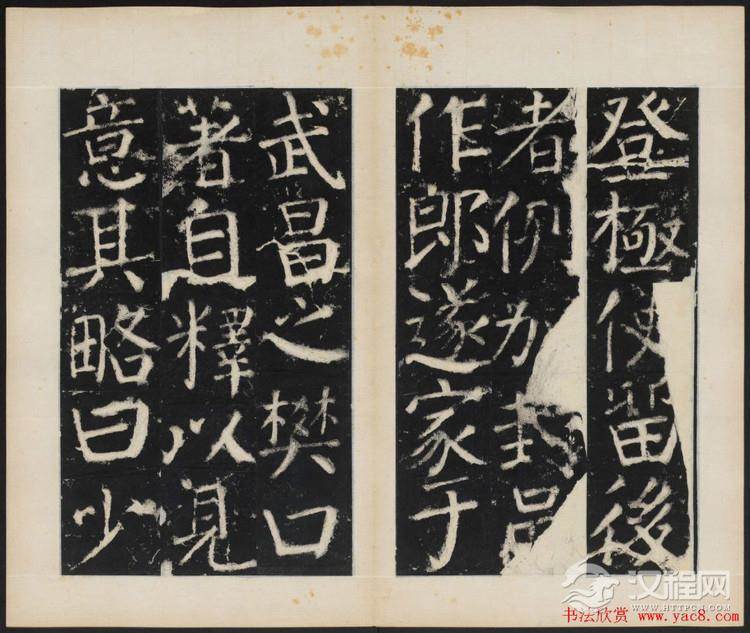 登極使留後
者例加封
作郎遂家于
武昌之樊口
著自釋以見
意其略曰少
汉程网
WWW.HTTPCN.COM
书法欣赏 www.yac8.com